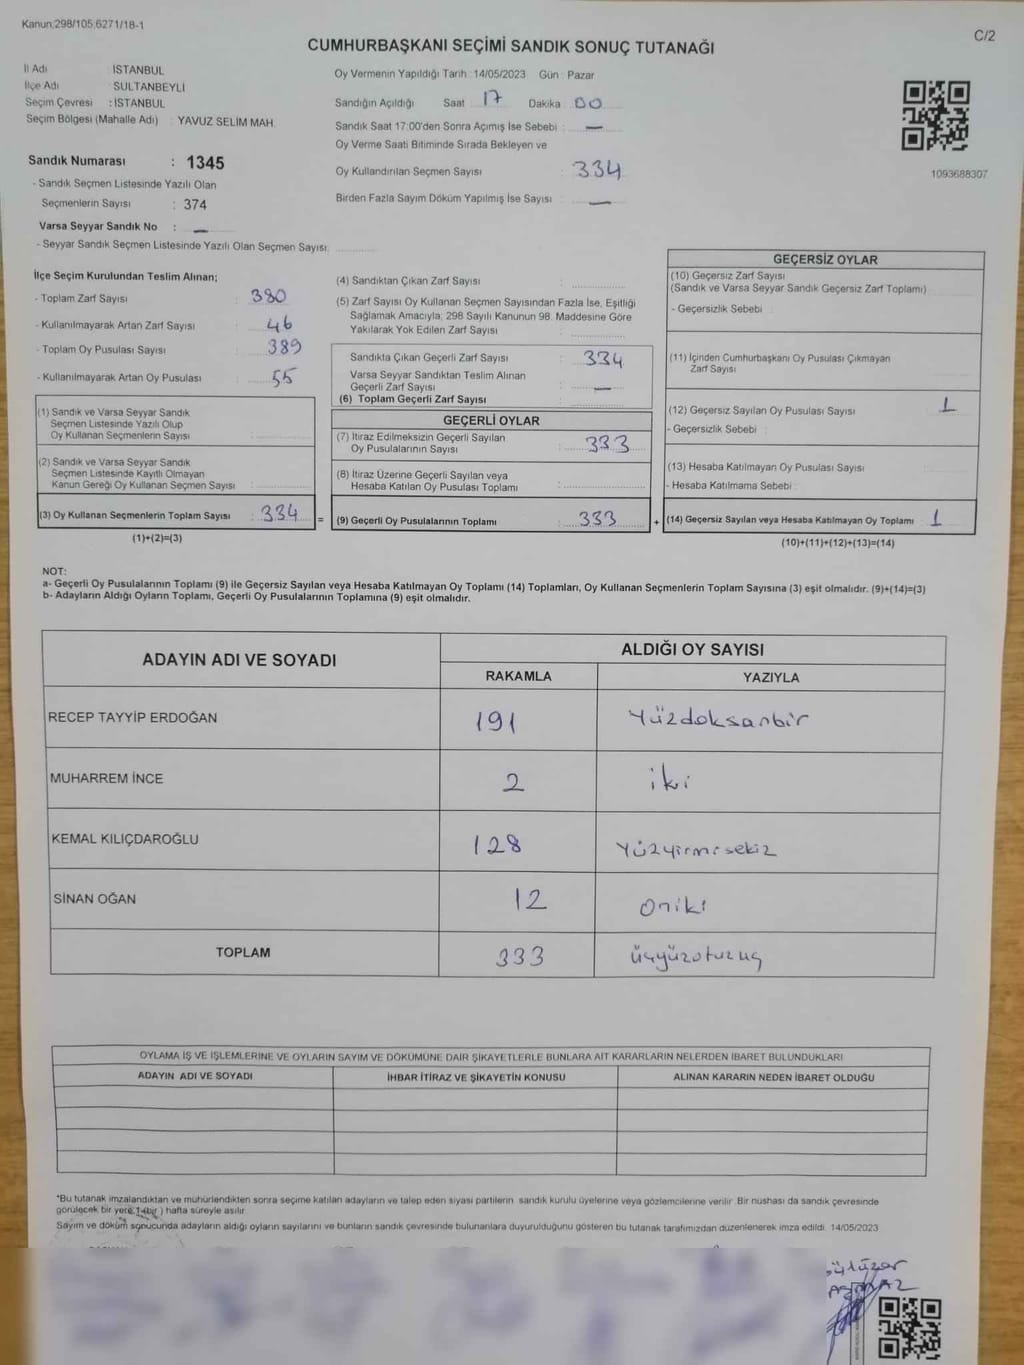 Kanun:298/105,6271/18-1
C/2
CUMHURBAŞKANI SEÇİMİ SANDIK SONUÇ TUTANAĞI
İl Adı : İSTANBUL
İlçe Adı : SULTANBEYLİ
Seçim Çevresi : İSTANBUL
Seçim Bölgesi (Mahalle Adı) : YAVUZ SELİM MAH.
Sandık Numarası : 1345
- Sandık Seçmen Listesinde Yazılı Olan
Seçmenlerin Sayısı : 374
Varsa Seyyar Sandık No : —
- Seyyar Sandık Seçmen Listesinde Yazılı Olan Seçmen Sayısı:
Oy Vermenin Yapıldığı Tarih : 14/05/2023 Gün : Pazar
Sandığın Açıldığı Saat 17 Dakika 00
Sandık Saat 17:00'den Sonra Açımış İse Sebebi : —
Oy Verme Saati Bitiminde Sırada Bekleyen ve
Oy Kullandırılan Seçmen Sayısı : 334
Birden Fazla Sayım Döküm Yapılmış İse Sayısı : —
1093688307
İlçe Seçim Kurulundan Teslim Alınan;
- Toplam Zarf Sayısı : 380
- Kullanılmayarak Artan Zarf Sayısı : 46
- Toplam Oy Pusulası Sayısı : 389
- Kullanılmayarak Artan Oy Pusulası : 55
(1) Sandık ve Varsa Seyyar Sandık
Seçmen Listesinde Yazılı Olup
Oy Kullanan Seçmenlerin Sayısı :
(2) Sandık ve Varsa Seyyar Sandık
Seçmen Listesinde Kayıtlı Olmayan
Kanun Gereği Oy Kullanan Seçmen Sayısı :
(3) Oy Kullanan Seçmenlerin Toplam Sayısı : 334 =
(1)+(2)=(3)
(4) Sandıktan Çıkan Zarf Sayısı :
(5) Zarf Sayısı Oy Kullanan Seçmen Sayısından Fazla İse, Eşitliği
Sağlamak Amacıyla, 298 Sayılı Kanunun 98. Maddesine Göre
Yakılarak Yok Edilen Zarf Sayısı :
Sandıkta Çıkan Geçerli Zarf Sayısı : 334
Varsa Seyyar Sandıktan Teslim Alınan
Geçerli Zarf Sayısı : —
(6) Toplam Geçerli Zarf Sayısı :
GEÇERLİ OYLAR
(7) İtiraz Edilmeksizin Geçerli Sayılan
Oy Pusulalarının Sayısı : 333
(8) İtiraz Üzerine Geçerli Sayılan veya
Hesaba Katılan Oy Pusulası Toplamı :
(9) Geçerli Oy Pusulalarının Toplamı : 333 +
GEÇERSİZ OYLAR
(10) Geçersiz Zarf Sayısı
(Sandık ve Varsa Seyyar Sandık Geçersiz Zarf Toplamı) :
- Geçersizlik Sebebi :
(11) İçinden Cumhurbaşkanı Oy Pusulası Çıkmayan
Zarf Sayısı :
(12) Geçersiz Sayılan Oy Pusulası Sayısı : 1
- Geçersizlik Sebebi :
(13) Hesaba Katılmayan Oy Pusulası Sayısı :
- Hesaba Katılmama Sebebi :
(14) Geçersiz Sayılan veya Hesaba Katılmayan Oy Toplamı : 1
(10)+(11)+(12)+(13)=(14)
NOT:
a- Geçerli Oy Pusulalarının Toplamı (9) ile Geçersiz Sayılan veya Hesaba Katılmayan Oy Toplamı (14) Toplamları, Oy Kullanan Seçmenlerin Toplam Sayısına (3) eşit olmalıdır. (9)+(14)=(3)
b- Adayların Aldığı Oyların Toplamı, Geçerli Oy Pusulalarının Toplamına (9) eşit olmalıdır.
ADAYIN ADI VE SOYADI
ALDIĞI OY SAYISI
RAKAMLA YAZIYLA
RECEP TAYYİP ERDOĞAN 191 Yüzdoksanbir
MUHARREM İNCE 2 iki
KEMAL KILIÇDAROĞLU 128 Yüzyirmisekiz
SİNAN OĞAN 12 Oniki
TOPLAM 333 üçyüzotuzuç
OYLAMA İŞ VE İŞLEMLERİNE VE OYLARIN SAYIM VE DÖKÜMÜNE DAİR ŞİKAYETLERLE BUNLARA AİT KARARLARIN NELERDEN İBARET BULUNDUKLARI
ADAYIN ADI VE SOYADI İHBAR İTİRAZ VE ŞİKAYETİN KONUSU ALINAN KARARIN NEDEN İBARET OLDUĞU
*Bu tutanak imzalandıktan ve mühürlendikten sonra seçime katılan adayların ve talep eden siyasi partilerin sandık kurulu üyelerine veya gözlemcilerine verilir. Bir nüshası da sandık çevresinde
görülecek bir yere 1 (bir) hafta süreyle asılır.
Sayım ve döküm sonucunda adayların aldığı oyların sayılarını ve bunların sandık çevresinde bulunanlara duyurulduğunu gösteren bu tutanak tarafımızdan düzenlenerek imza edildi. 14/05/2023